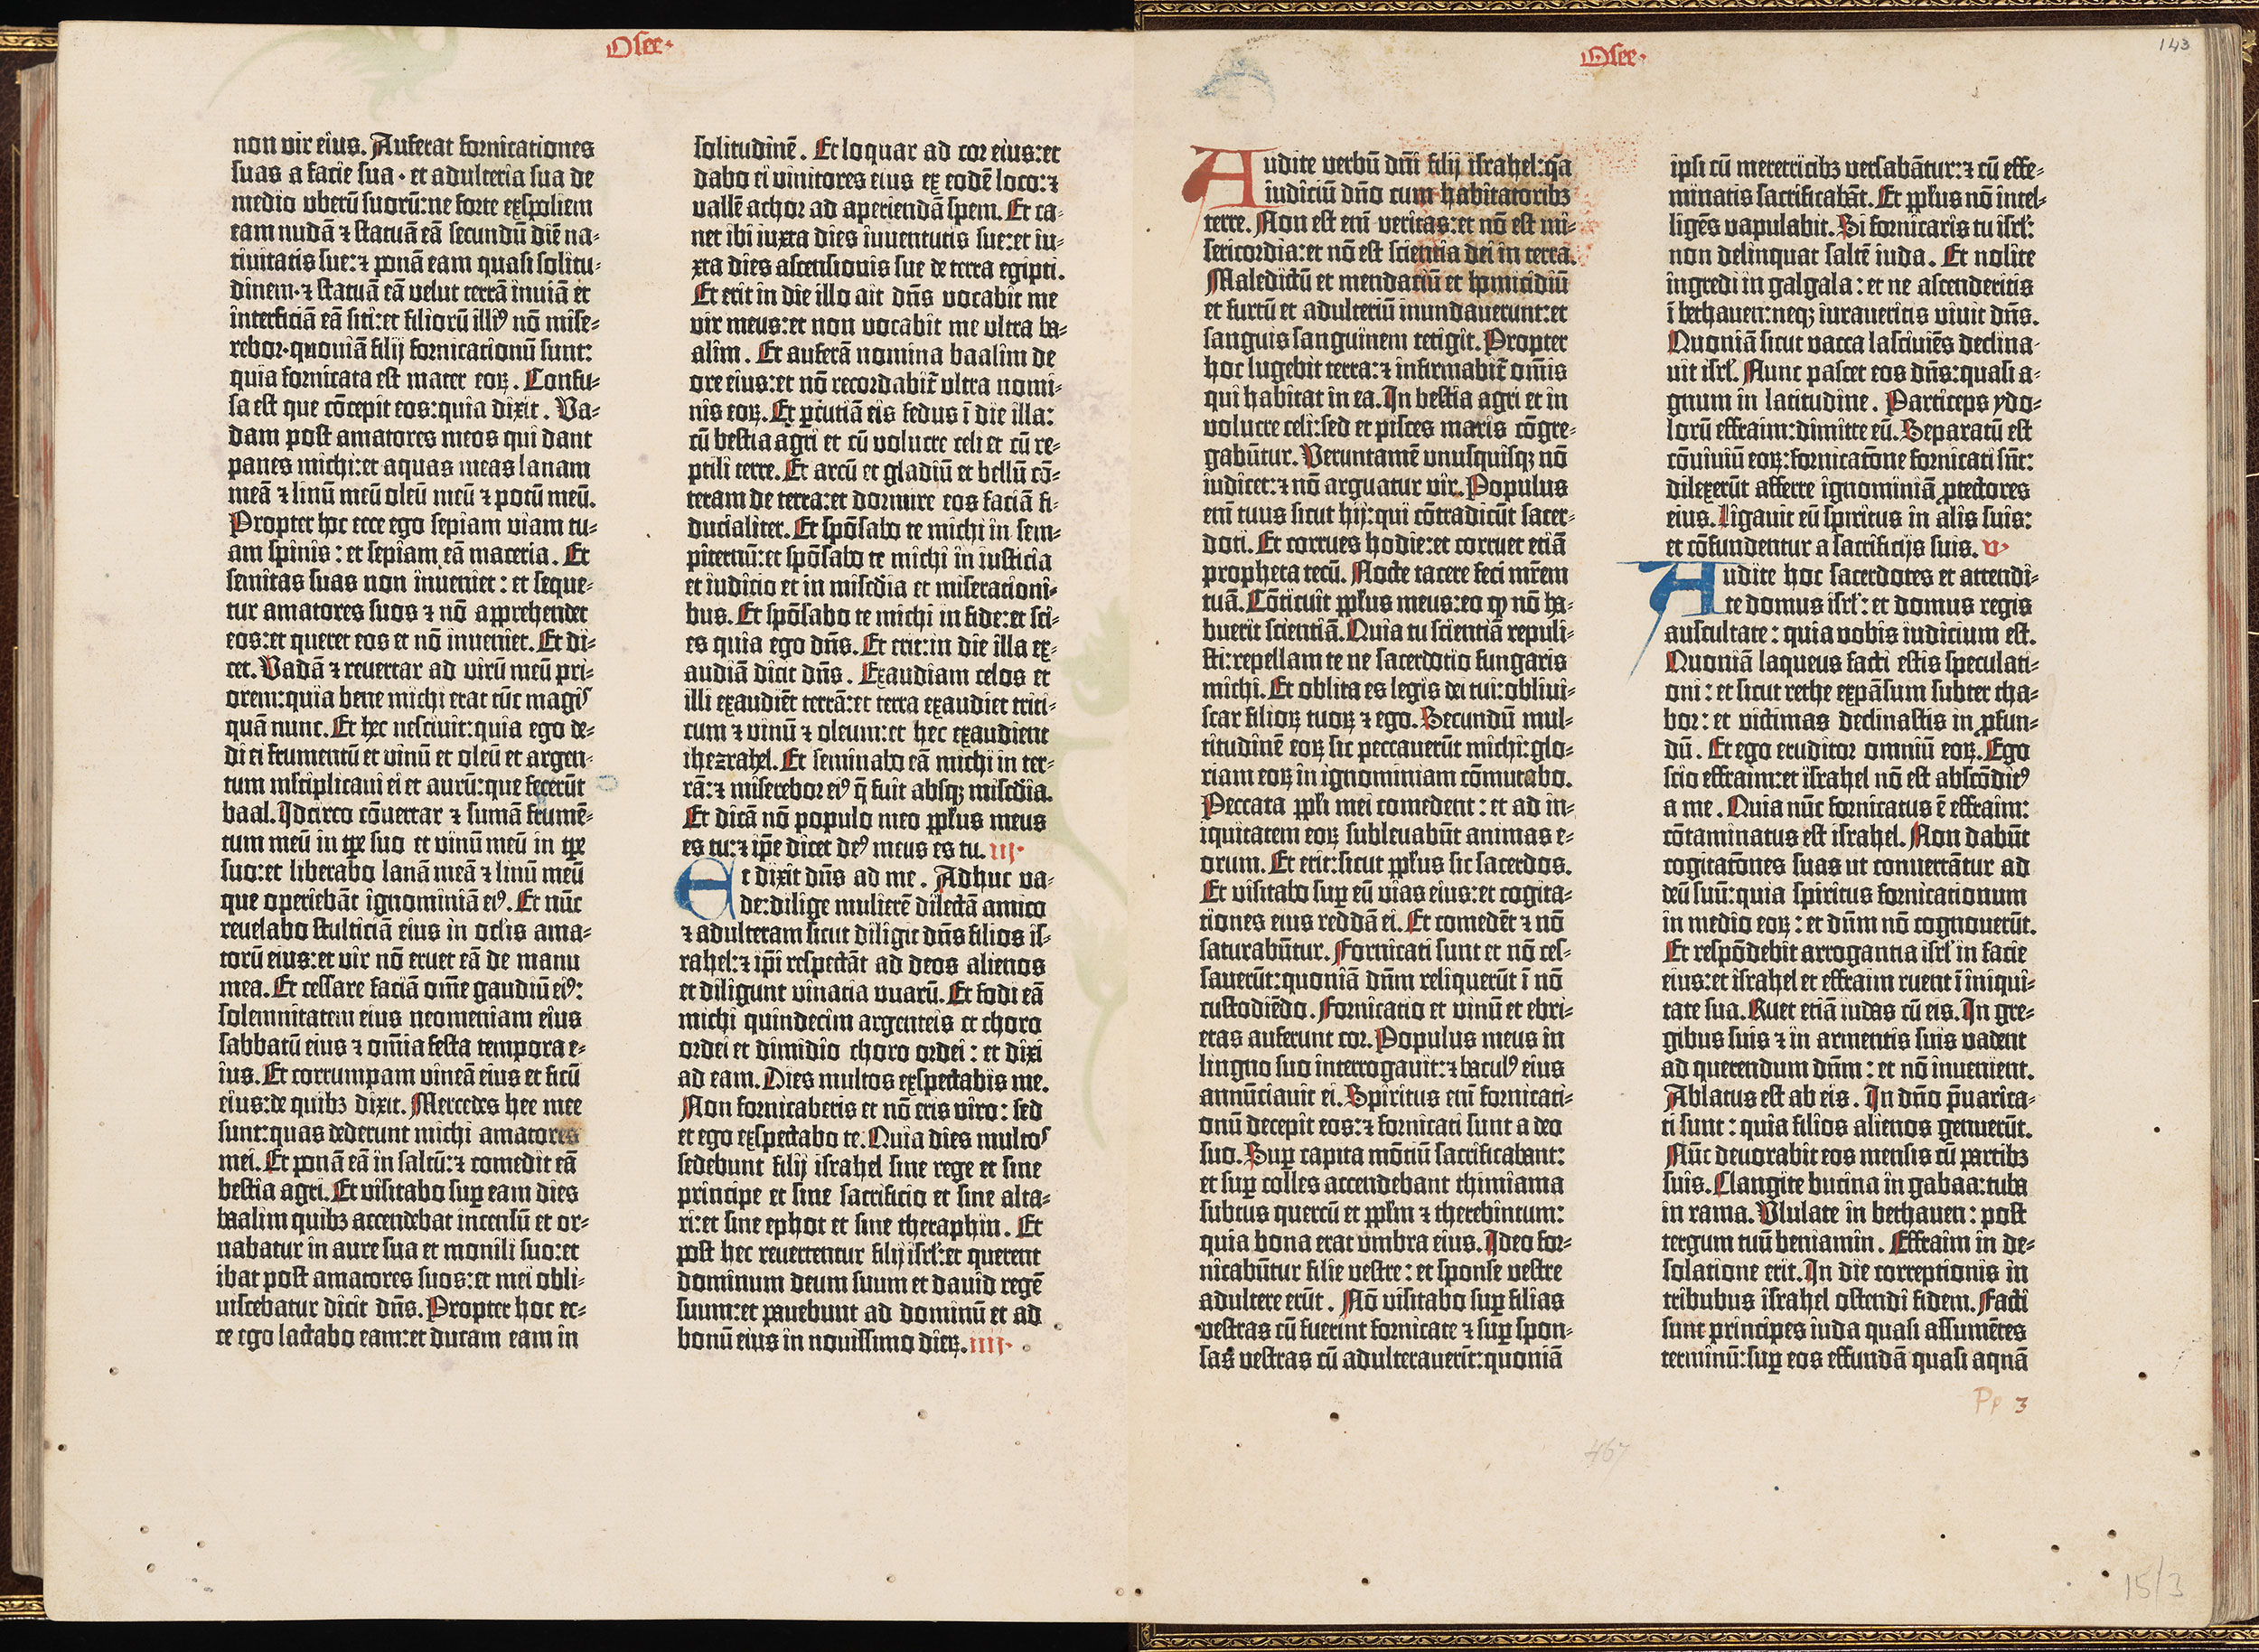 Osee.
non vir eius. Auferat fornicationes
suas a facie sua · et adulteria sua de
medio vberū suorū: ne forte exspoliem
eam nudā ⁊ statuā eā secundū diē na⸗
tiuitatis sue: ⁊ ponā eam quasi solitu⸗
dinem · ⁊ statuā eā velut terrā inuiā et
interficiā eā siti: et filiorū illiꝰ nō mise⸗
rebor · quoniā filij fornicationū sunt:
quia fornicata est mater eoꝝ. Confu⸗
sa est que cōcepit eos: quia dixit. Va⸗
dam post amatores meos qui dant
panes michi: et aquas meas lanam
meā ⁊ linū meū oleū meū ⁊ potū meū.
Propter hoc ecce ego sepiam viam tu⸗
am spinis: et sepiam eā maceria. Et
semitas suas non inueniet: et seque⸗
tur amatores suos ⁊ nō apprehendet
eos: et queret eos et nō inueniet. Et di⸗
cet. Vadā ⁊ reuertar ad virū meū pri⸗
orem: quia bene michi erat tūc magis
quā nunc. Et hec nesciuit: quia ego de⸗
di ei frumentū et vinū et oleū et argen⸗
tum mltiplicaui ei et aurū: que fecerūt
baal. Idcirco cōuertar ⁊ sumā frumē⸗
tum meū in tpe suo et vinū meū in tpe
suo: et liberabo lanā meā ⁊ linū meū
que operiebāt ignominiā eiꝰ. Et nūc
reuelabo stulticiā eius in oclis ama⸗
torū eius: et vir nō eruet eā de manu
mea. Et cessare faciā om̄e gaudiū eiꝰ:
solemnitatem eius neomeniam eius
sabbatū eius ⁊ om̄ia festa tempora e⸗
ius. Et corrumpam vineā eius et ficū
eius: de quibꝫ dixit. Mercedes hee mee
sunt: quas dederunt michi amatores
mei. Et ponā eā in saltū: ⁊ comedit eā
bestia agri. Et visitabo suꝑ eam dies
baalim quibꝫ accendebat incensū et or⸗
nabatur in aure sua et monili suo: et
ibat post amatores suos: et mei obli⸗
uiscebatur dicit dn̄s. Propter hoc ec⸗
ce ego lactabo eam: et ducam eam in
solitudinē. Et loquar ad cor eius: et
dabo ei vinitores eius ex eodē loco: ⁊
vallē achor ad aperiendā spem. Et ca⸗
net ibi iuxta dies iuuentutis sue: et iu⸗
xta dies ascensionis sue de terra egipti.
Et erit in die illo ait dn̄s vocabit me
vir meus: et non vocabit me vltra ba⸗
alim. Et auferā nomina baalim de
ore eius: et nō recordabit̄ vltra nomi⸗
nis eoꝝ. Et ꝑcutiā eis fedus ī die illa:
cū bestia agri et cū volucre celi et cū re⸗
ptili terre. Et arcū et gladiū et bellū cō⸗
teram de terra: et dormire eos faciā fi⸗
ducialiter. Et spōsabo te michi in sem⸗
piternū: et spōsabo te michi in iusticia
et iudicio et in mis̄cdia et miserationi⸗
bus. Et spōsabo te michi in fide: et sci⸗
es quia ego dn̄s. Et erit: in die illa ex⸗
audiā dicit dn̄s. Exaudiam celos et
illi exaudiēt terrā: et terra exaudiet triti⸗
cum ⁊ vinū ⁊ oleum: et hec exaudient
ihezrahel. Et seminabo eā michi in ter⸗
rā: ⁊ miserebor eiꝰ q̄ fuit absqꝫ mis̄cdia.
Et dicā nō populo meo ppl̄us meus
es tu: ⁊ ip̄e dicet deꝰ meus es tu. III·
Et dixit dn̄s ad me. Adhuc va⸗
de: dilige mulierē dilectā amico
⁊ adulteram sicut diligit dn̄s filios is⸗
rahel: ⁊ ip̄i respectāt ad deos alienos
et diligunt vinacia vuarū. Et fodi eā
michi quindecim argenteis et choro
ordei et dimidio choro ordei: et dixi
ad eam. Dies multos exspectabis me.
Non fornicaberis et nō eris viro: sed
et ego exspectabo te. Quia dies multos
sedebunt filij israhel sine rege et sine
principe et sine sacrificio et sine alta⸗
ri: et sine ephot et sine theraphin. Et
post hec reuertentur filij isrl̄: et querent
dominum deum suum et dauid regē
suum: et pauebunt ad dominū et ad
bonū eius in nouissimo dieꝝ. IIII·
Osee.
143
Audite verbū dn̄i filij israhel: q̄a
iudiciū dn̄o cum habitatoribꝫ
terre. Non est enī veritas: et nō est mi⸗
sericordia: et nō est scientia dei in terra.
Maledictū et mendaciū et homicidiū
et furtū et adulteriū inundauerunt: et
sanguis sanguinem tetigit. Propter
hoc lugebit terra: ⁊ infirmabit̄ om̄is
qui habitat in ea. In bestia agri et in
volucre celi: sed et pisces maris cōgre⸗
gabūtur. Veruntamē vnusquisqꝫ nō
iudicet: ⁊ nō arguatur vir. Populus
enī tuus sicut hij: qui cōtradicūt sacer⸗
doti. Et corrues hodie: et corruet etiā
propheta tecū. Nocte tacere feci mr̄em
tuā. Cōticuit ppl̄us meus: eo ꝙ nō ha⸗
buerit scientiā. Quia tu scientiā repuli⸗
sti: repellam te ne sacerdotio fungaris
michi. Et oblita es legis dei tui: obliui⸗
scar filioꝝ tuoꝝ ⁊ ego. Secundū mul⸗
titudinē eoꝝ sic peccauerūt michi: glo⸗
riam eoꝝ in ignominiam cōmutabo.
Peccata ppl̄i mei comedent: et ad in⸗
iquitatem eoꝝ subleuabūt animas e⸗
orum. Et erit: sicut ppl̄us sic sacerdos.
Et visitabo suꝑ eū vias eius: et cogita⸗
tiones eius reddā ei. Et comedēt ⁊ nō
saturabūtur. Fornicati sunt et nō ces⸗
sauerūt: quoniā dn̄m reliquerūt ī nō
custodiēdo. Fornicatio et vinū et ebri⸗
etas auferunt cor. Populus meus in
lingno suo interrogauit: ⁊ baculꝰ eius
annūciauit ei. Spiritus enī fornicati⸗
onū decepit eos: ⁊ fornicati sunt a deo
suo. Suꝑ capita mōtiū sacrificabant:
et suꝑ colles accendebant thimiama
subtus quercū et ppl̄m ⁊ therebintum:
quia bona erat vmbra eius. Ideo for⸗
nicabūtur filie vestre: et sponse vestre
adultere erūt. Nō visitabo suꝑ filias
vestras cū fuerint fornicate ⁊ suꝑ spon⸗
sas vestras cū adulterauerīt: quoniā
ipsi cū meretricibꝫ versabātur: ⁊ cū effe⸗
minatis sacrificabāt. Et ppl̄us nō intel⸗
ligēs vapulabit. Si fornicaris tu isrl̄:
non delinquat saltē iuda. Et nolite
ingredi in galgala: et ne ascenderitis
ī bethauen: neqꝫ iuraueritis viuit dn̄s.
Quoniā sicut vacca lasciuiēs declina⸗
uit isrl̄. Nunc pascet eos dn̄s: quasi a⸗
gnum in latitudine. Particeps ydo⸗
lorū effraim: dimitte eū. Separatū est
cōuiuiū eoꝝ: fornicatōne fornicati sn̄t:
dilexerūt afferre ignominiā ꝓtectores
eius. Ligauit eū spiritus in alis suis:
et cōfundentur a sacrificijs suis. V·
Audite hoc sacerdotes et attendi⸗
te domus isrl̄: et domus regis
auscultate: quia vobis iudicium est.
Quoniā laqueus facti estis speculati⸗
oni: et sicut rethe expāsum subter tha⸗
bor: et victimas declinastis in ꝓfun⸗
dū. Et ego eruditor omniū eoꝝ. Ego
scio effraim: et israhel nō est abscōditꝰ
a me. Quia nūc fornicatus ē effraim:
cōtaminatus est israhel. Non dabūt
cogitatōnes suas ut conuertātur ad
deū suū: quia spiritus fornicationum
in medio eoꝝ: et dn̄m nō cognouerūt.
Et respōdebit arrogantia isrl̄ in facie
eius: et israhel et effraim ruent ī iniqui⸗
tate sua. Ruet etiā iudas cū eis. In gre⸗
gibus suis ⁊ in armentis suis vadent
ad querendum dn̄m: et nō inuenient.
Ablatus est ab eis. In dn̄o p̄uarica⸗
ti sunt: quia filios alienos genuerūt.
Nūc deuorabit eos mensis cū partibꝫ
suis. Clangite bucina in gabaa: tuba
in rama. Vlulate in bethauen: post
tergum tuū beniamin. Effraim in de⸗
solatione erit. In die correptionis in
tribubus israhel ostendi fidem. Facti
sunt principes iuda quasi assumētes
terminū: suꝑ eos effundā quasi aquā
Pp 3
467
15/3